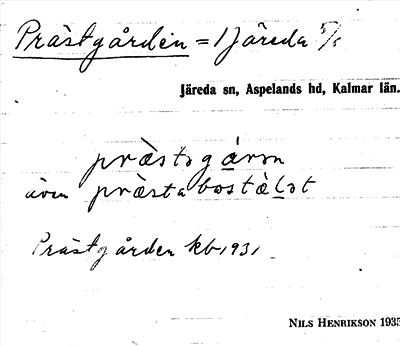 Prästgården = 1 Järeda 5/8
Järeda sn, Aspelands hd, Kalmar län.
præ̀stəgáʀən
även præ̀stabostæ̀lət
Prästgården kb 1931
NILS HENRIKSON 1935